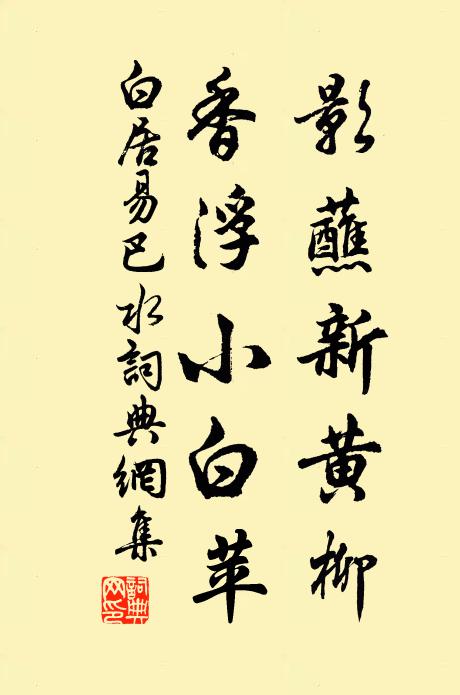 影蘸新黄柳
香浮小白苹
白居易巴水詞典網集
詞典网印